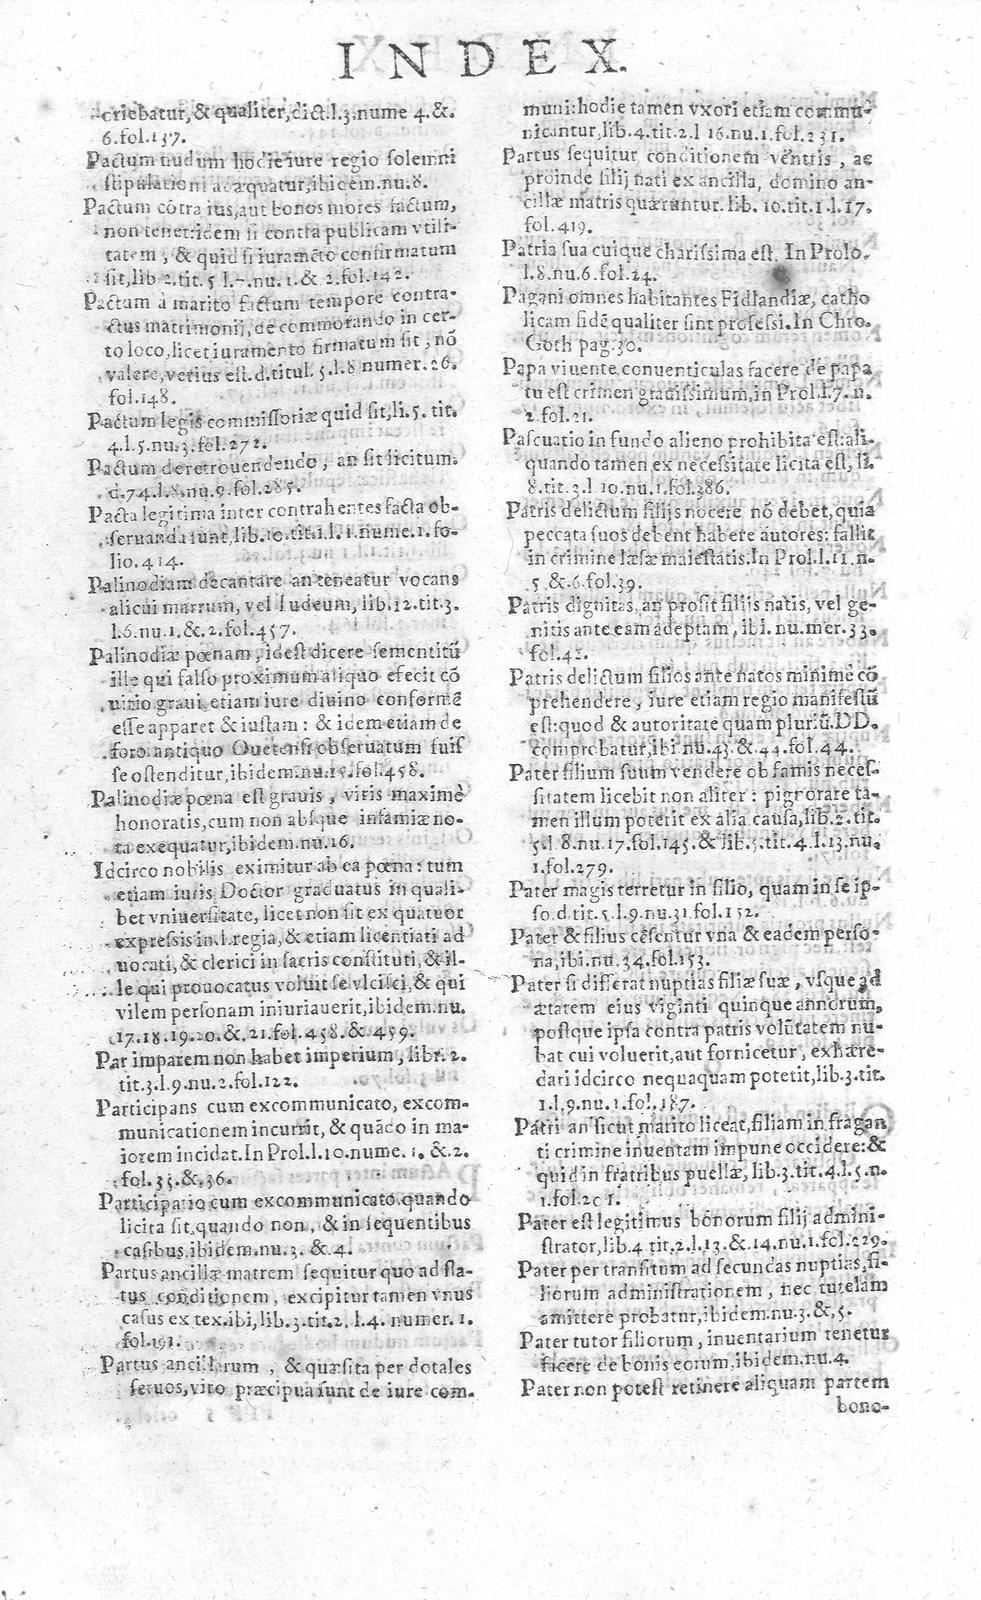 INDEX.
criebatur, & qualiter, dict.l.3.nume 4.&.
6.fol.137.
Pactum nudum hodie iure regio solemni
stipulationi adæquatur, ibidem.nu.8.
Pactum cōtra ius, aut bonos mores factum,
non tenet: idem si contra publicam vtili-
tatem, & quid si iuramēto confirmatum
sit, lib 2.tit. 5 l.7.nu.1.& 2.fol.142.
Pactum à marito factum tempore contra-
ctus matrimonij, de commorando in cer-
to loco, licet iuramento firmatum sit, nō
valere, verius est.d.titul. 5.l.8 numer.26.
fol.148.
Pactum legis commissoriæ quid sit, li.5. tit.
4.l.5.nu.3.fol.272.
Pactum de retrouendendo, an sit licitum.
d.74.l.8.nu.9.fol.285.
Pacta legitima inter contrahentes facta ob-
seruanda sunt, lib.10.tit.1.l.1.nume.1.fo-
lio.414.
Palinodiam decantare an teneatur vocans
alicui marrum, vel Iudeum, lib.12.tit.3.
l.6.nu.1.& 2.fol.457.
Palinodiæ pœnam, id est dicere se mentitū
ille qui falso proximum aliquo efecit cō
uitio graui, etiam iure diuino conformē
esse apparet & iustam: & idem etiam de
foro antiquo Ouetensi obseruatum fuis
se ostenditur, ibidem.nu.15.fol.458.
Palinodiæ pœna est grauis, viris maximè
honoratis, cum non absque infamiæ no-
ta exequatur, ibidem.nu.16.
Idcirco nobilis eximitur ab ea pœna: tum
etiam iuris Doctor graduatus in quali-
bet vniuersitate, licet non sit ex quatuor
expressis in l.regia, & etiam licentiati ad
uocati, & clerici in sacris constituti, & il-
le qui prouocatus voluit se vlcisci, & qui
vilem personam iniuriauerit, ibidem.nu.
17.18.19.20.&.21.fol.458.& 459.
Par imparem non habet imperium, libr.2.
tit.3.l.9.nu.2.fol.122.
Participans cum excommunicato, excom-
municationem incurrit, & quādo in ma-
iorem incidat. In Prol.l.10.nume.1.&.2.
fol.35.&.36.
Participatio cum excommunicato, quando
licita sit, quando non, & in sequentibus
casibus, ibidem.nu.3. &.4.
Partus ancillæ matrem sequitur quo ad sta-
tus conditionem, excipitur tamen vnus
casus ex tex.ibi, lib.3.tit.2, l.4. numer.1.
fol.191.
Partus ancillarum, & quæsita per dotales
seruos, viro præcipua sunt de iure com-
muni: hodie tamen vxori etiam commu-
nicantur, lib.4.tit.2.l 16.nu.1.fol.231.
Partus sequitur conditionem ventris, ac
proinde filij nati ex ancilla, domino an-
cillæ matris quæruntur. lib. 10.tit.1.l.17.
fol.419.
Patria sua cuique charissima est. In Prolo.
l.8.nu.6.fol.24.
Pagani omnes habitantes Fidlandiæ, catho
licam fidē qualiter sint professi. In Chro.
Goth pag.30.
Papa viuente, conuenticulas facere de papa
tu est crimen grauissimum, in Prol.l.7.n.
2.fol.21.
Pascuatio in fundo alieno prohibita est: ali-
quando tamen ex necessitate licita est, li.
8.tit.3.l 10.nu.1.fol.386.
Patris delictum filijs nocere nō debet, quia
peccata suos debent habere autores: fallit
in crimine læsæ maiestatis. In Prol.l.11.n.
5 &.6.fol.39.
Patris dignitas, an prosit filiis natis, vel ge-
nitis ante eam adeptam, ibi.nu.mer.33.
fol.42.
Patris delictum filios ante natos minimè cō
prehendere, iure etiam regio manifestū
est: quod & autoritate quam plurū.DD.
comprobatur, ibi nu.43.&.44.fol.44.
Pater filium suum vendere ob famis neces-
sitatem licebit non aliter: pignorare ta-
men illum poterit ex alia causa, lib.2.tit.
5.l.8.nu.17.fol.145.& lib.5.tit.4.l.13.nu.
1.fol.279.
Pater magis terretur in filio, quam in se ip-
so.d.tit.5.l.9.nu.31.fol.152.
Pater & filius cēsentur vna & eadem perso-
na, ibi.nu.34.fol.153.
Pater si differat nuptias filiæ suæ, vsque ad
ætatem eius viginti quinque annorum,
postque ipsa contra patris volūtatem nu-
bat cui voluerit, aut fornicetur, exhære-
dari idcirco nequaquam poterit, lib.3.tit.
1.l.9.nu.1.fol.187.
Patri an sicut marito liceat, filiam in fragan
ti crimine inuentam impune occidere: &
quid in fratribus puellæ, lib.3.tit.4.l.5.n.
1.fol.201.
Pater est legitimus bonorum filij admini-
strator, lib.4 tit.2.l.13.&.14.nu.1.fol.229.
Pater per transitum ad secundas nuptias, fi-
liorum administrationem, nec tutelam
amittere probatur, ibidem.nu.3.&.5.
Pater tutor filiorum, inuentarium tenetur
facere de bonis eorum, ibidem.nu.4.
Pater non potest retinere aliquam partem
bono-